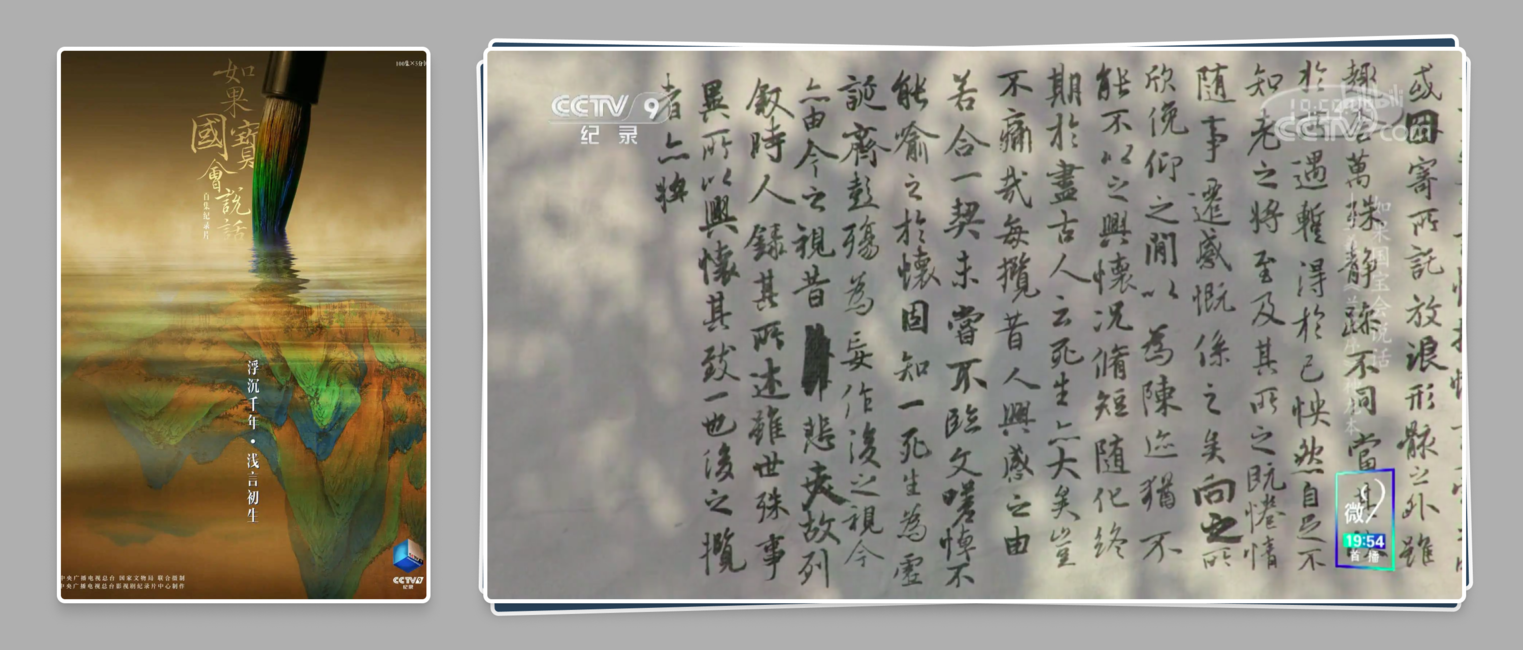 如果
國寶
會說話
百集纪录片
浮沉千年·浅言初生
中央广播电视总台 国家文物局 联合摄制
中央广播电视总台影视剧纪录片中心制作
CCTV9
纪录
CCTV 9
纪 录
CCTV.com
或因寄所託放浪形骸之外雖
趣舍萬殊静躁不同當
於所遇暫得於己怏然自足不
知老之将至及其所之既惓情
随事遷感慨係之矣向之所
欣俛仰之閒以為陳迹猶不
能不以之興懷況脩短随化終
期於盡古人云死生亦大矣豈
不痛哉每攬昔人興感之由
若合一契未嘗不臨文嗟悼不
能喻之於懷固知一死生為虛
誕齊彭殤為妄作後之視今
亦由今之視昔悲夫故列
叙時人録其所述雖世殊事
異所以興懷其致一也後之攬
者亦将
如果国宝会说话
微9
19:54
首播